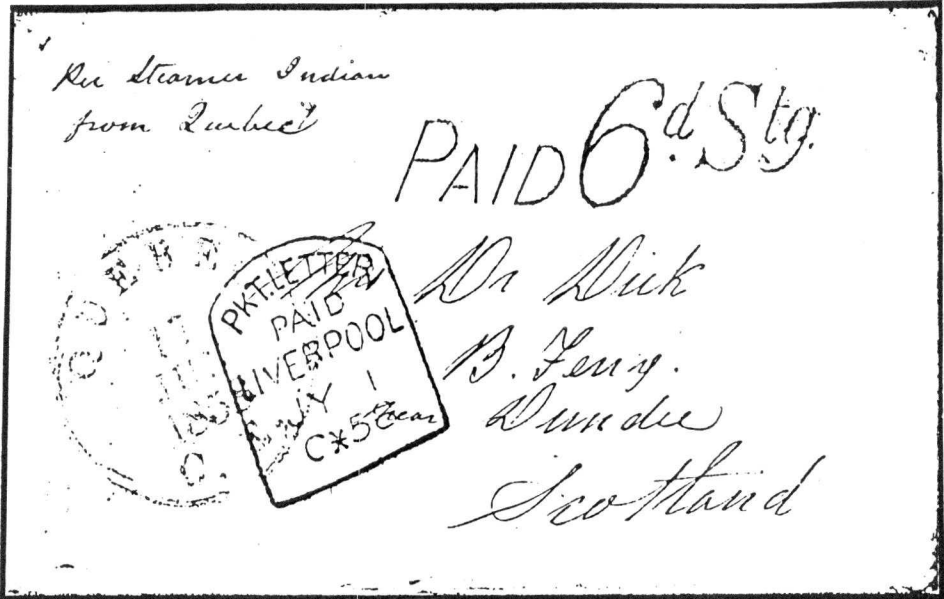 Per Steamer Indian
from Quebec
PAID 6d. Stg.
QUEBEC
PKT. LETTER
PAID
LIVERPOOL
JY 1
C*58
Dr Dick
B. Ferry.
Dundee
Scotland